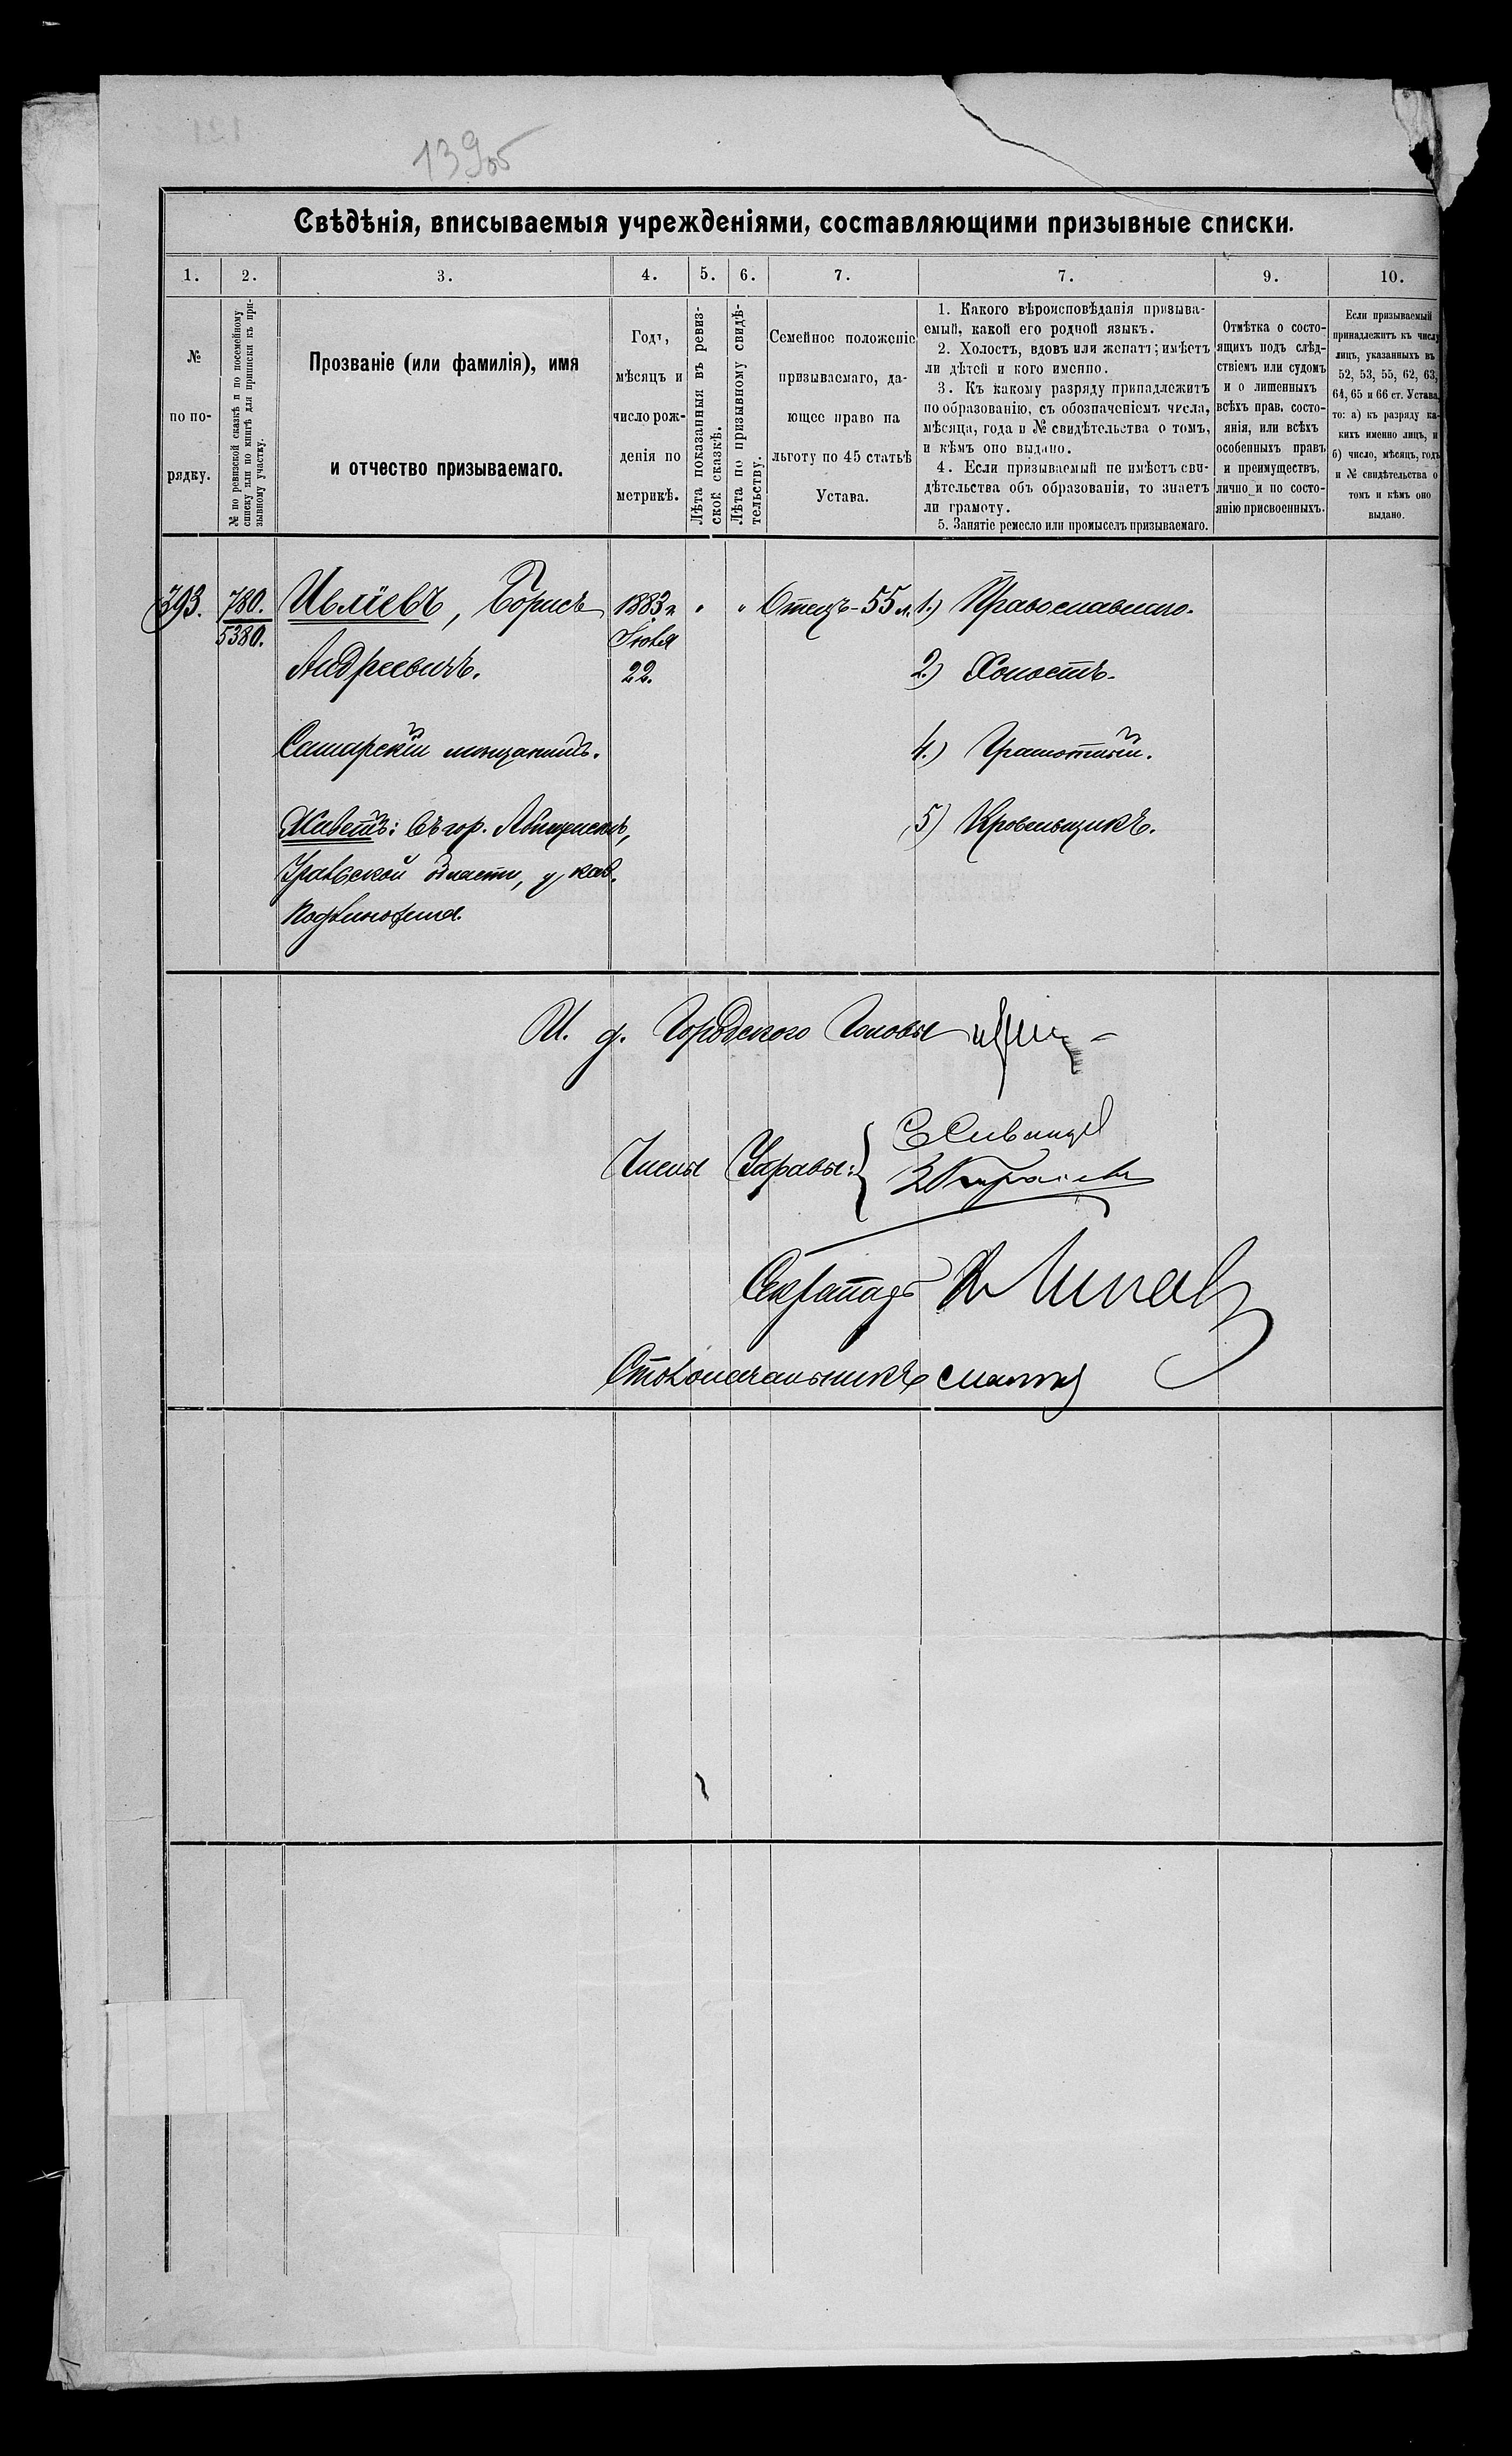 13905
Свѣдѣнія, вписываемыя учрежденіями, составляющими призывные списки.
1. 2. 3. 4. 5. 6. 7. 7. 9. 10.
№
по по-
рядку.
№ по ревизской сказкѣ и по посемейному
списку или по книгѣ для приписки къ при-
зывному участку.
Прозваніе (или фамилія), имя
и отчество призываемаго.
Годъ,
мѣсяцъ и
число рож-
денія по
метрикѣ.
Лѣта показанныя въ ревиз-
ской сказкѣ.
Лѣта по призывному свидѣ-
тельству.
Семейное положеніе
призываемаго, да-
ющее право на
льготу по 45 статьѣ
Устава.
1. Какого вѣроисповѣданія призыва-
емый, какой его родной языкъ.
2. Холостъ, вдовъ или женатъ; имѣетъ
ли дѣтей и кого именно.
3. Къ какому разряду принадлежитъ
по образованію, съ обозначеніемъ числа,
мѣсяца, года и № свидѣтельства о томъ,
и кѣмъ оно выдано.
4. Если призываемый не имѣетъ сви-
дѣтельства объ образованіи, то знаетъ
ли грамоту.
5. Занятіе ремесло или промыселъ призываемаго.
Отмѣтка о состо-
ящихъ подъ слѣд-
ствіемъ или судомъ
и о лишенныхъ
всѣхъ прав, состо-
янія, или всѣхъ
особенныхъ правъ
и преимуществъ,
лично и по состо-
янію присвоенныхъ.
Если призываемый
принадлежитъ къ числу
лицъ, указанныхъ въ
52, 53, 55, 62, 63,
64, 65 и 66 ст. Устава,
то: а) къ разряду ка-
кихъ именно лицъ, и
б) число, мѣсяцъ, годъ
и № свидѣтельства о
томъ и кѣмъ оно
выдано.
393. 780. Ивлiевъ, Борисъ 1883 г. " " Отецъ - 55 л. 1.) Православнаго.
5380. Іюля
Андреевичъ. 22. 2.) Холостъ.
Самарскій мѣщанинъ. 4.) Грамотный.
Живетъ: въ гор. Лбищенскѣ, 5) Кровельщикъ.
Уральской области, у каз.
И. д. Городского Головы
Члены Управы:
Секретарь
Столоначальникъ